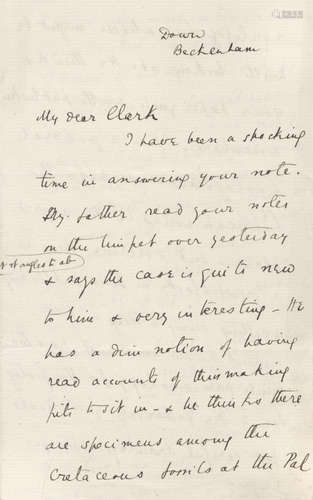 Down
Beckenham
My dear Clark
I have been a shocking
time in answering your note.
My father read your notes
on the limpet over yesterday
& says the case is quite new
to him & very interesting – He
has a dim notion of having
read accounts of this making
pits to sit in – & he thinks there
are specimens among the
cretaceous fossils at the Pal